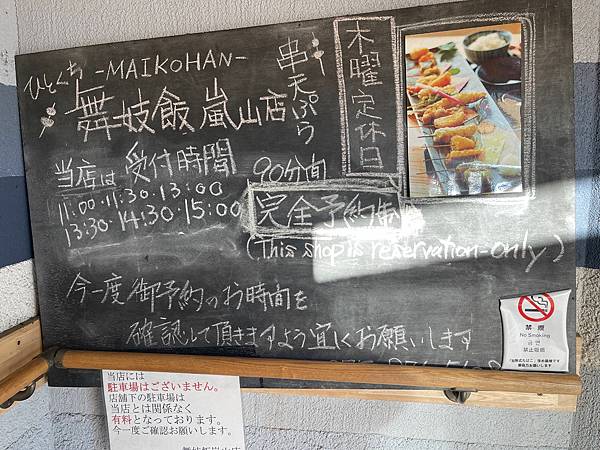 ひとくち -MAIKOHAN-
舞妓飯 嵐山店
串天ぷら
木曜定休日
当店は 受付時間
11:00・11:30・13:00
13:30・14:30・15:00
90分間
完全予約制
(This shop is reservation-only)
今一度御予約のお時間を
確認して頂きますよう宜しくお願いします
禁煙
No Smoking
금연
禁止吸烟
当店には
駐車場はございません。
店舗下の駐車場は
当店とは関係なく
有料となっております。
今一度ご確認お願いします。